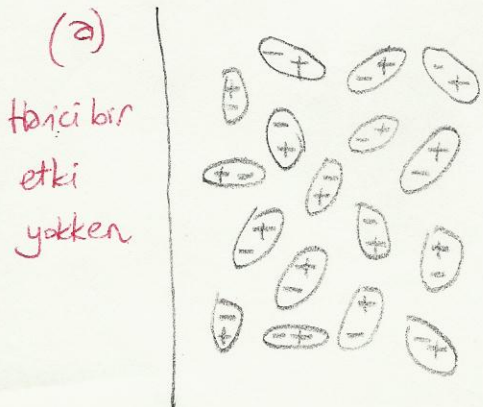 (a)
Harici bir
etki
yokken